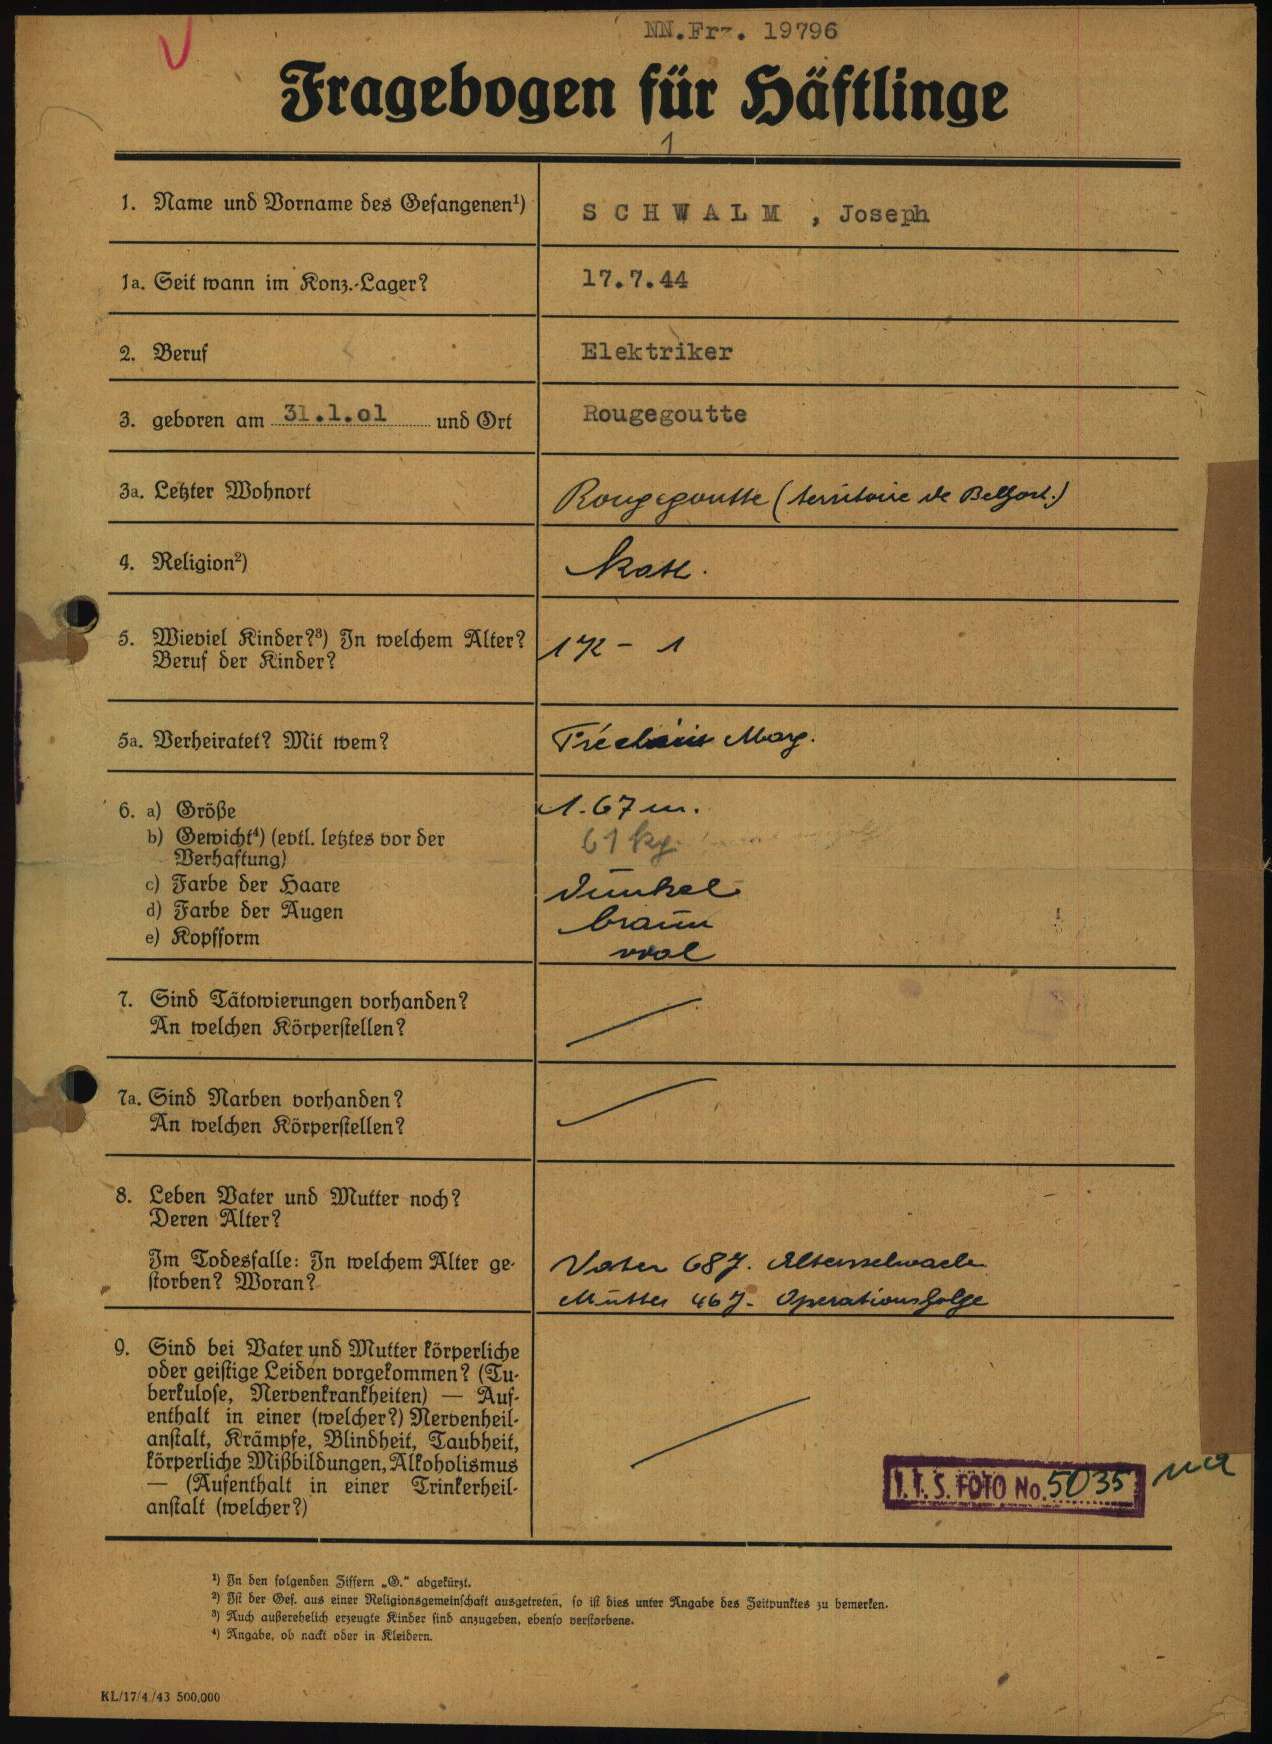 NN.Frz. 19796
Fragebogen für Häftlinge
1
1. Name und Vorname des Gefangenen¹) SCHWALM, Joseph
1a. Seit wann im Konz.-Lager? 17.7.44
2. Beruf Elektriker
3. geboren am 31.1.01 und Ort Rougegoutte
3a. Letzter Wohnort Rougegoutte (territoire de Belfort.)
4. Religion²) kath.
5. Wieviel Kinder?³) In welchem Alter? 1 K - 1
Beruf der Kinder?
5a. Verheiratet? Mit wem? Marg.
6. a) Größe 1.67 m.
b) Gewicht⁴) (evtl. letztes vor der 61 kg.
Verhaftung)
c) Farbe der Haare dunkel
d) Farbe der Augen braun
e) Kopfform oval
7. Sind Tätowierungen vorhanden?
An welchen Körperstellen?
7a. Sind Narben vorhanden?
An welchen Körperstellen?
8. Leben Vater und Mutter noch?
Deren Alter?
Im Todesfalle: In welchem Alter ge- Vater 68 J. Altersschwäche
storben? Woran? Mutter 46 J. Operationsfolge
9. Sind bei Vater und Mutter körperliche
oder geistige Leiden vorgekommen? (Tu-
berkulose, Nervenkrankheiten) — Auf-
enthalt in einer (welcher?) Nervenheil-
anstalt, Krämpfe, Blindheit, Taubheit,
körperliche Mißbildungen, Alkoholismus
— (Aufenthalt in einer Trinkerheil-
anstalt (welcher?)
I.T.S. FOTO No. 5035
¹) In den folgenden Ziffern „G.“ abgekürzt.
²) Ist der Gef. aus einer Religionsgemeinschaft ausgetreten, so ist dies unter Angabe des Zeitpunktes zu bemerken.
³) Auch außerehelich erzeugte Kinder sind anzugeben, ebenso verstorbene.
⁴) Angabe, ob nackt oder in Kleidern.
KL/17/4/43 500.000